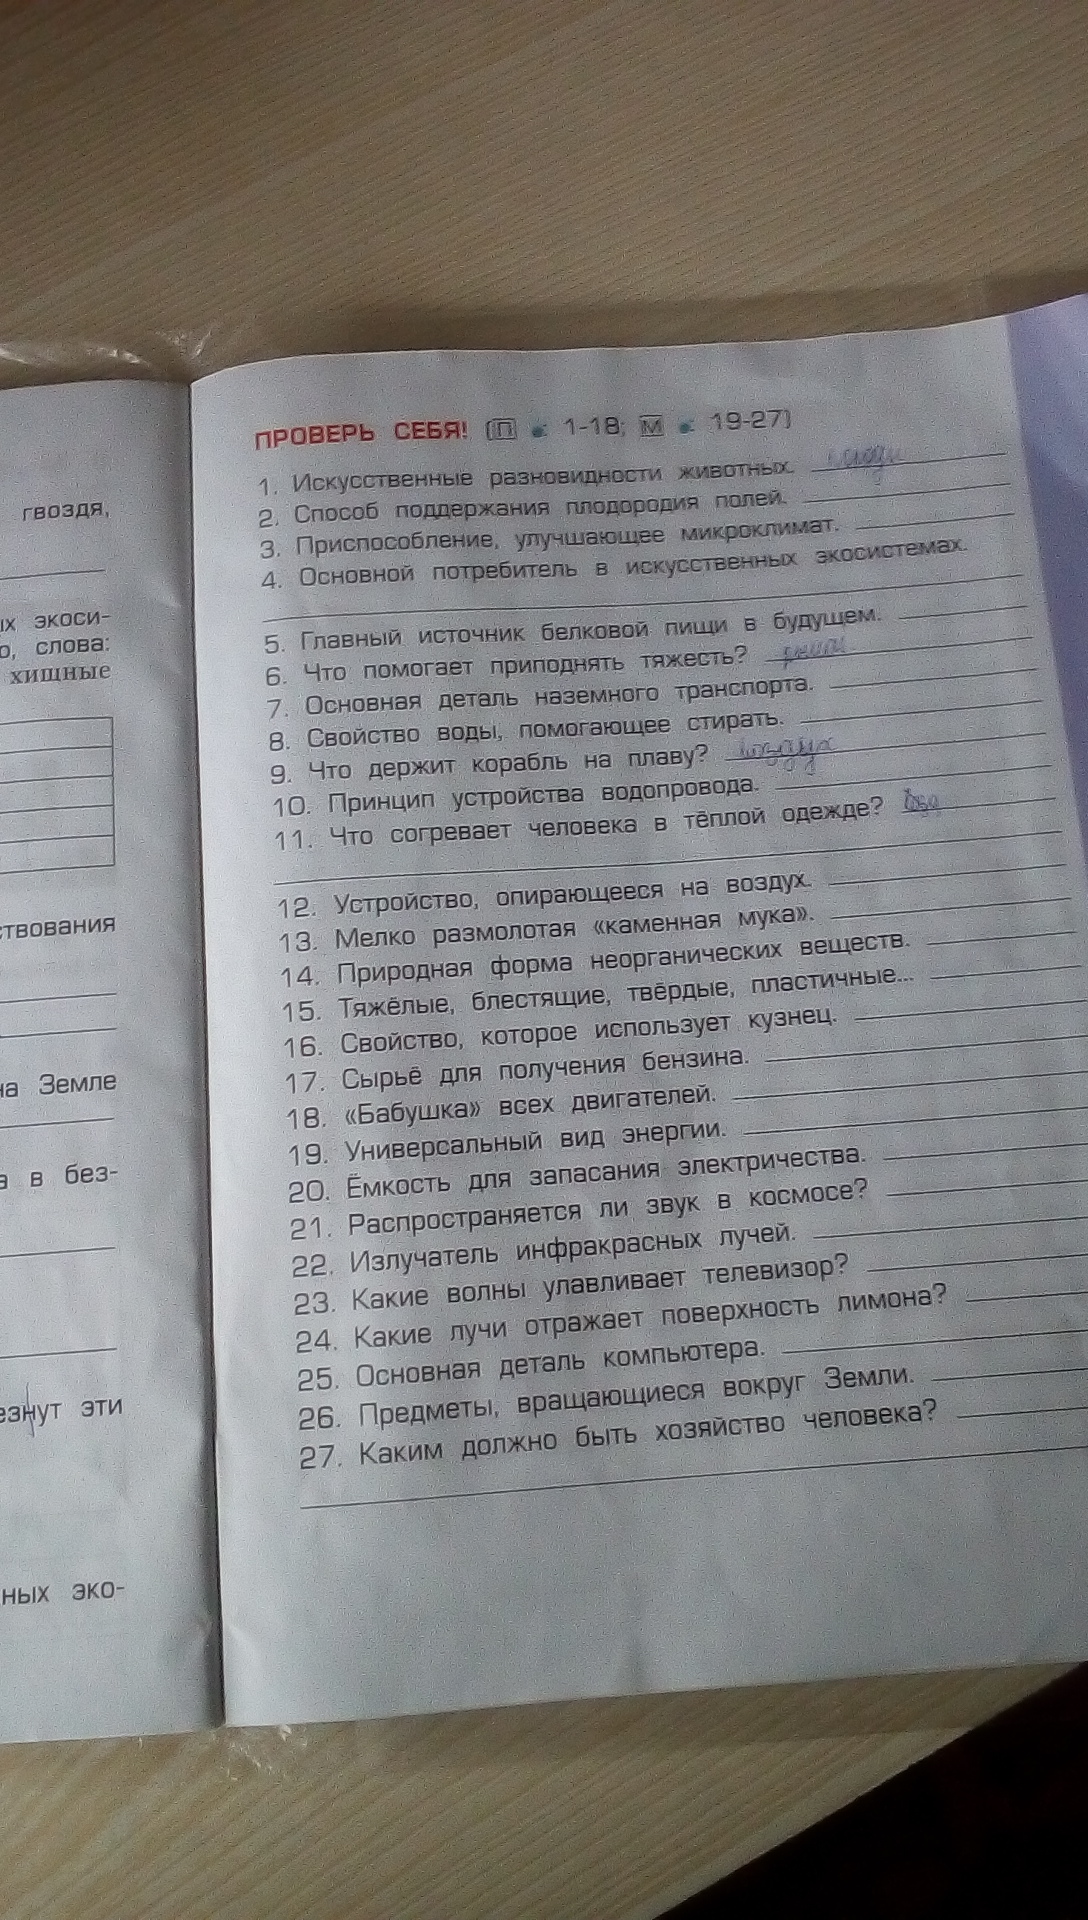 гвоздя,
ых экоси-
о, слова:
хищные
ствования
на Земле
а в без-
езнут эти
ных эко-
ПРОВЕРЬ СЕБЯ! (П 1-18; М 19-27)
1. Искусственные разновидности животных.
2. Способ поддержания плодородия полей.
3. Приспособление, улучшающее микроклимат.
4. Основной потребитель в искусственных экосистемах.
5. Главный источник белковой пищи в будущем.
6. Что помогает приподнять тяжесть?
7. Основная деталь наземного транспорта.
8. Свойство воды, помогающее стирать.
9. Что держит корабль на плаву? воздух
10. Принцип устройства водопровода.
11. Что согревает человека в тёплой одежде?
12. Устройство, опирающееся на воздух.
13. Мелко размолотая «каменная мука».
14. Природная форма неорганических веществ.
15. Тяжёлые, блестящие, твёрдые, пластичные...
16. Свойство, которое использует кузнец.
17. Сырьё для получения бензина.
18. «Бабушка» всех двигателей.
19. Универсальный вид энергии.
20. Ёмкость для запасания электричества.
21. Распространяется ли звук в космосе?
22. Излучатель инфракрасных лучей.
23. Какие волны улавливает телевизор?
24. Какие лучи отражает поверхность лимона?
25. Основная деталь компьютера.
26. Предметы, вращающиеся вокруг Земли.
27. Каким должно быть хозяйство человека?